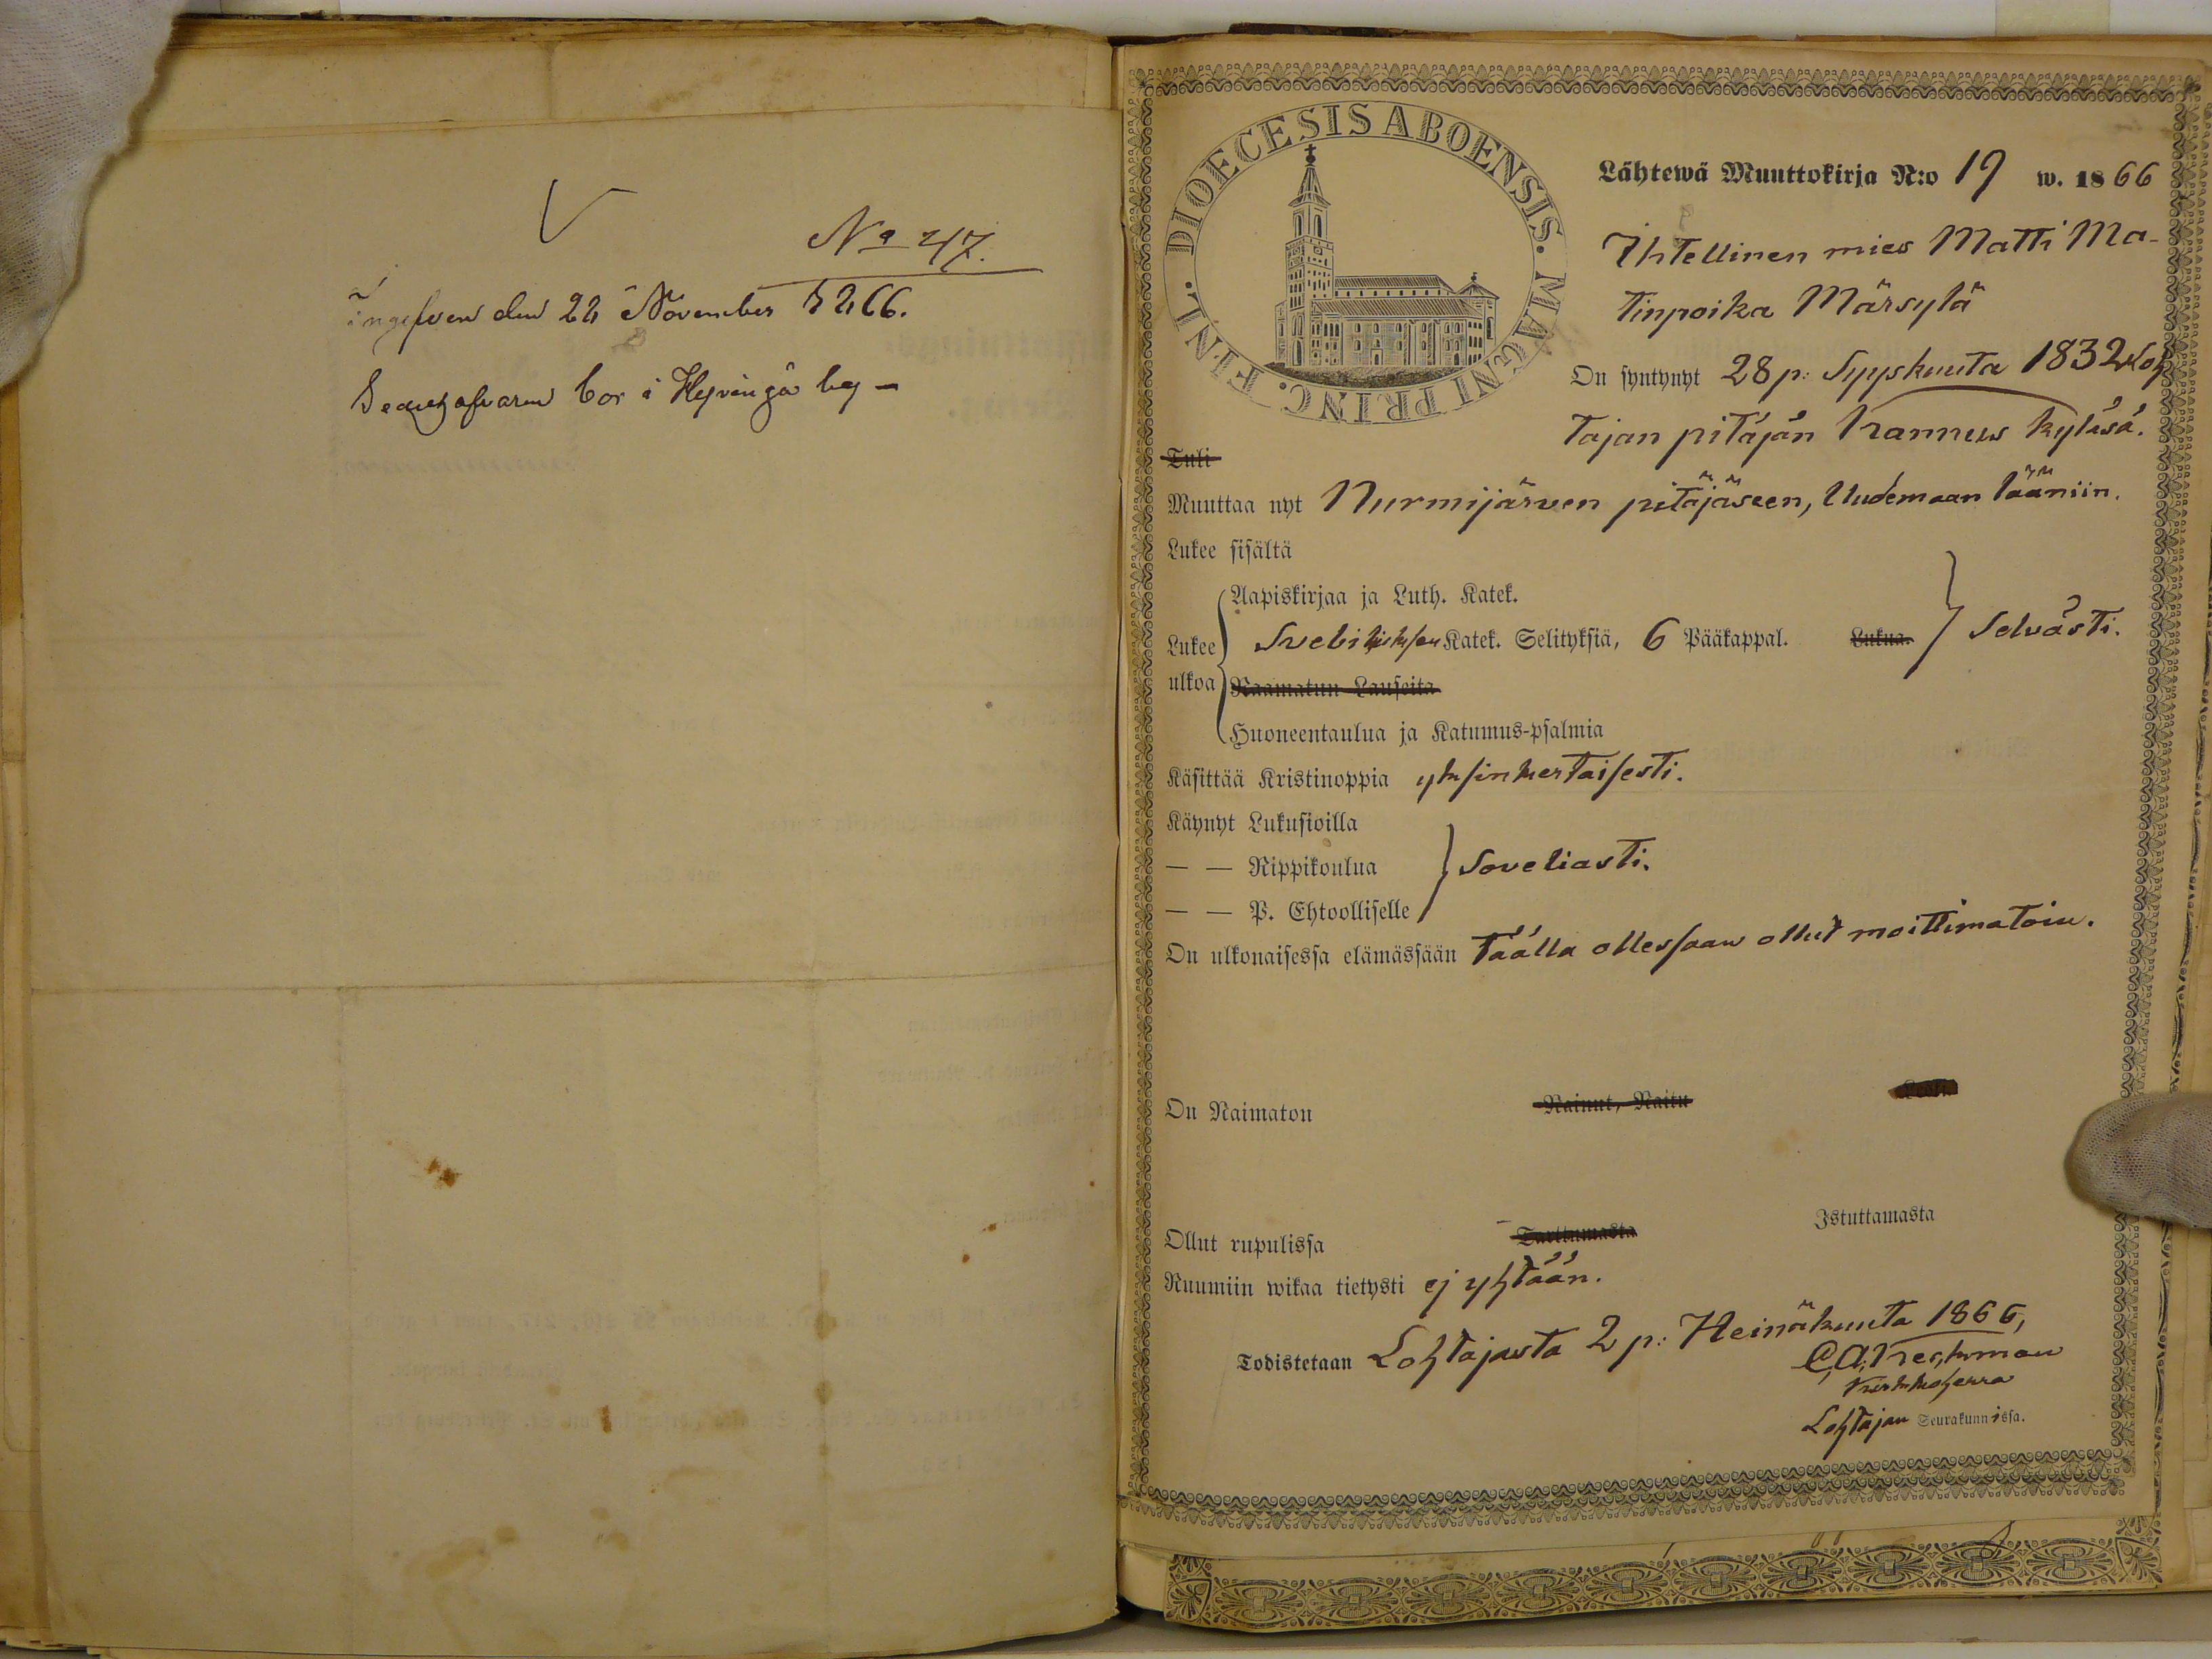 No 47.
ingifven den 22 November 1866.
bor i Hyvingå by –
DIOECESIS ABOENSIS. MAGNI PRINC. FINL.
Lähtewä Muuttokirja N:o 19 w. 1866
Ihtellinen mies Matti Ma-
tinpoika Märsylä
On syntynyt 28 p: Syyskuuta 1832 Loh
tajan pitäjän Kannus kyläsä.
Tuli
Muuttaa nyt Nurmijärven pitäjäseen, Uudemaan lääniin.
Lukee sisältä
Aapiskirjaa ja Luth. Katek.
Lukee Svebiliuksen Katek. Selityksiä, 6 Pääkappal. Lukua. Selvästi.
ulkoa Raamatun Lauseita
Huoneentaulua ja Katumus-psalmia
Käsittää Kristinoppia yksinkertaisesti.
Käynyt Lukusioilla
— — Rippikoulua Soveliasti.
— — P. Ehtoolliselle
On ulkonaisessa elämässään täällä ollessaan ollut moittimatoin.
On Naimaton Nainut, Naitu Leski
Ollut rupulissa Tarttumasta Istuttamasta
Ruumiin wikaa tietysti ej yhtään.
Todistetaan Lohtajasta 2 p: Heinäkuuta 1866,
C.A.
Kirkkoherra
Lohtajan Seurakunnissa.